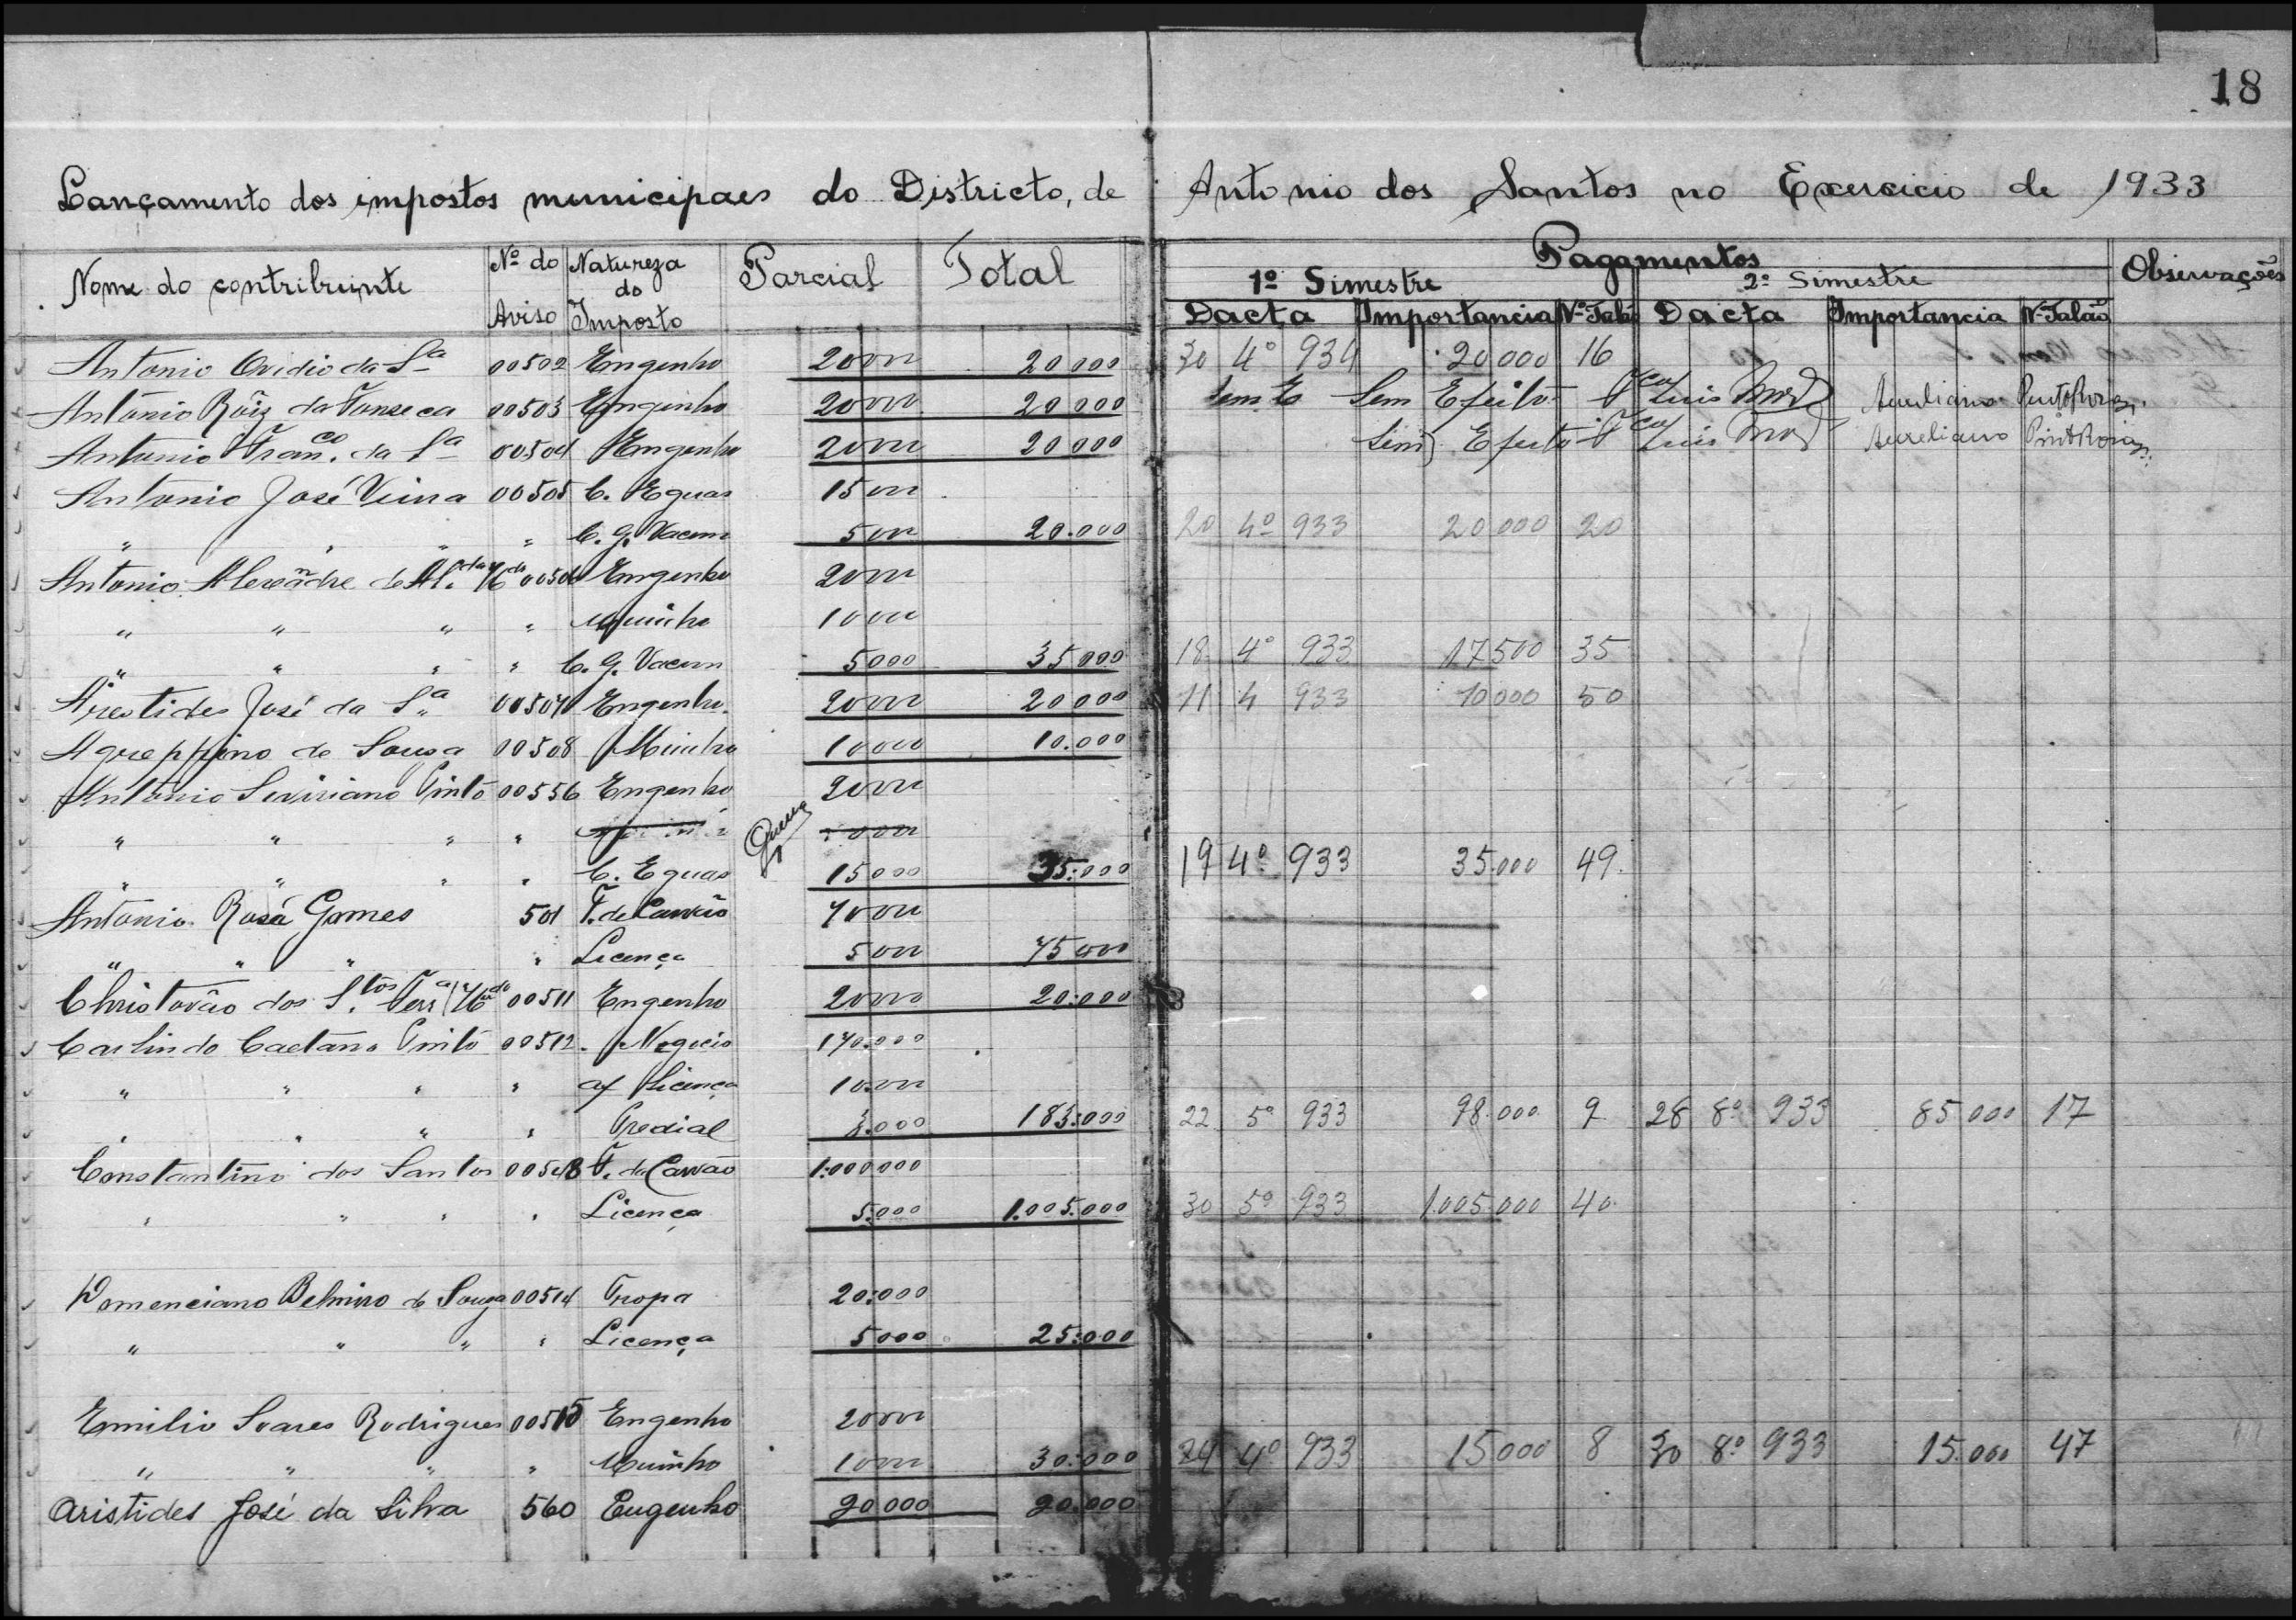 18
Lançamento dos impostos municipaes do Districto, de Antonio dos Santos no Exercicio de 1933
Nome do contribuinte Nº do Aviso Natureza do Imposto Parcial Total Pagamentos Observações
1º Simestre 2º Simestre
Dacta Importancia Nº Talão Dacta Importancia Nº Talão
Antonio Ovidio da Sª 00502 Engenho 20000 20000 30 4º 934 20000 16
Antonio Róiz da Fonseca 00503 Engenho 20000 20000 Sem Efeito Fco Luis Aureliano
Antonio Franco. da Sª 00504 Engenho 20000 20000 Sem Efeito Fco Luis Aureliano
Antonio José Vieira 00505 C. Eguas 15000
" " " " C. G. Vacum 5000 20.000 20 4º 933 20000 20
Antonio Alexandre de 00506 Engenho 20000
" " " " Muinho 10000
" " " " C. G. Vacum 5000 35000 18 4º 933 17500 35
Arestides José da Sª 00507 Engenho 20000 20000 11 4 933 10000 50
Agreppino de Souza 00508 Muinho 10000 10.000
Antonio Seviriano Pinto 00556 Engenho 20000
" " " "
" " " " C. Eguas 15000 35:000 19 4º 933 35.000 49
Antonio Rosa Gomes 501 F. de Carvão 70000
" " " " Licença 5000 75000
Christovão dos Stos. 00511 Engenho 20000 20:000
Carlindo Caetano Pinto 00512 Negocio 170.000
" " " " a/ Licença 10.000
" " " " Predial 3.000 183:000 22 5º 933 98.000 9 28 8º 933 85000 17
Constantino dos Santos F. de Carvão 1:000000
" " " " Licença 5:000 1.005.000 30 5º 933 1.005.000 40
Domenciano Belmiro de Souza 00514 Tropa 20:000
" " " " Licença 5000 25:000
Emilio Soares Rodrigues 00515 Engenho 20000
" " " " Muinho 10000 30:000 24 4º 933 15000 8 30 8º 933 15.000 47
Aristides José da Silva 560 Engenho 20000 20.000